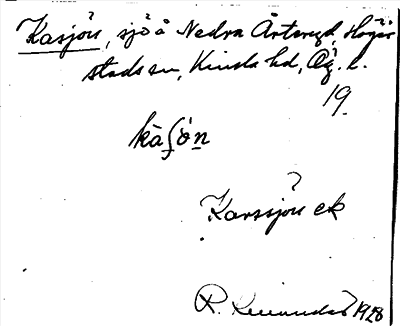 Kasjön, sjö å Nedra Årteryd, Högär
stads sn, Kinda hd, Ög. l.
19.
kàʃön
?
Karssjön ek
R. 1928